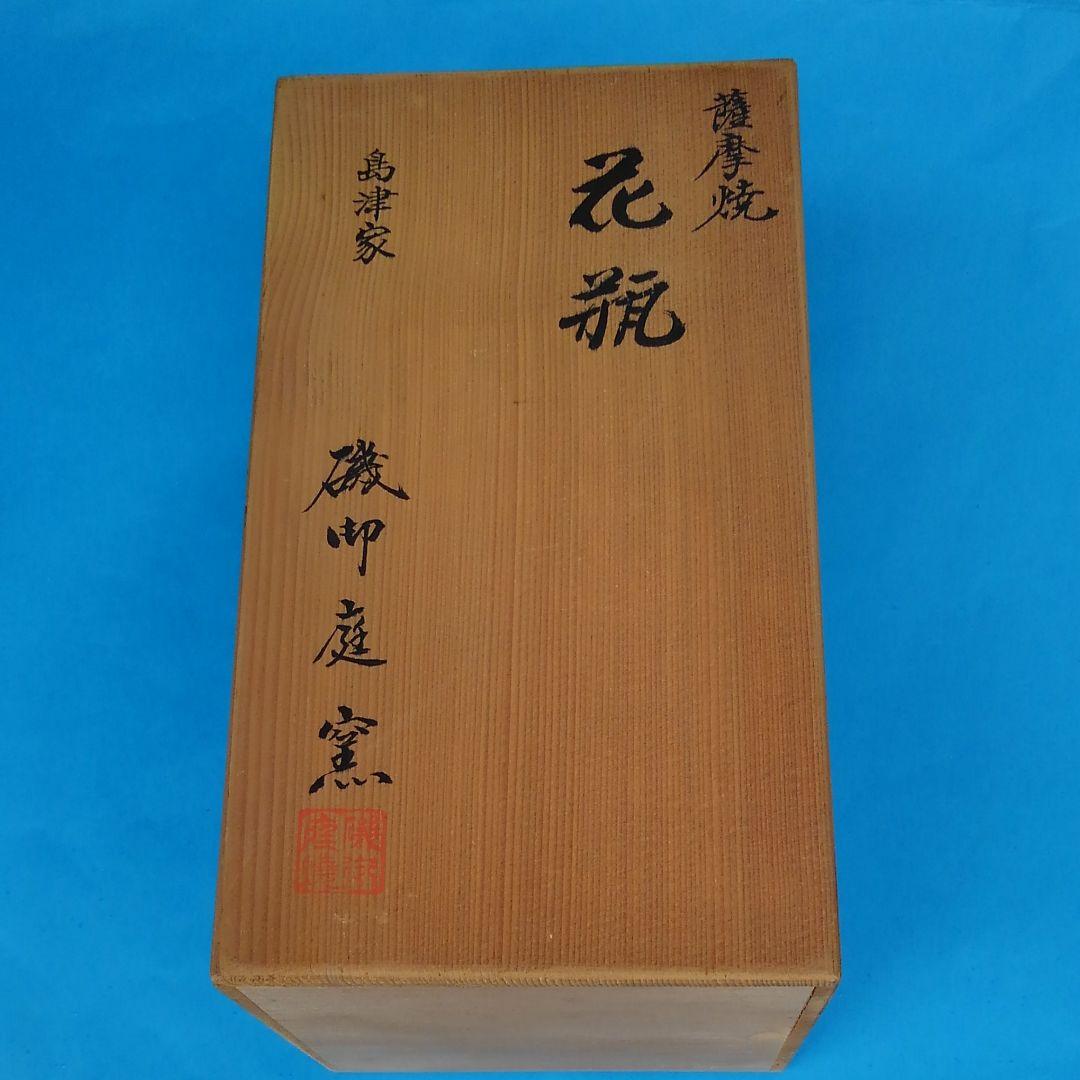 薩摩焼
花瓶
島津家
磯御庭窯